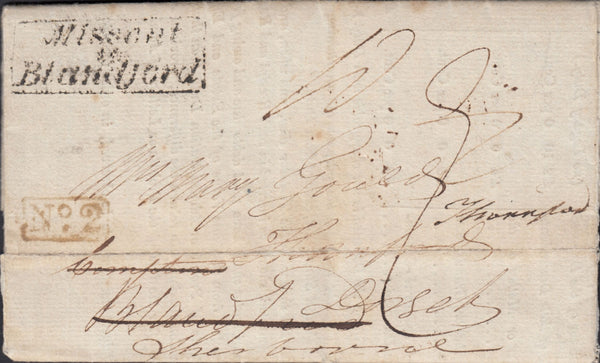 Missent
to
Blandford
10
Mrs Mary Gould
Thornford
No. 2
Compton Thornford
Blandford Dorset
Sherborne